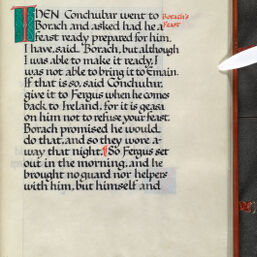 THEN Conchubar went to
Borach's
Feast
Borach and asked had he a
feast ready prepared for him.
I have, said Borach, but although
I was able to make it ready, I
was not able to bring it to Emain.
If that is so, said Conchubar,
give it to Fergus when he comes
back to Ireland, for it is geasa
on him not to refuse your feast.
Borach promised he would
do that, and so they wore a-
way that night. ¶ So Fergus set
out in the morning, and he
brought no guard nor helpers
with him, but himself and